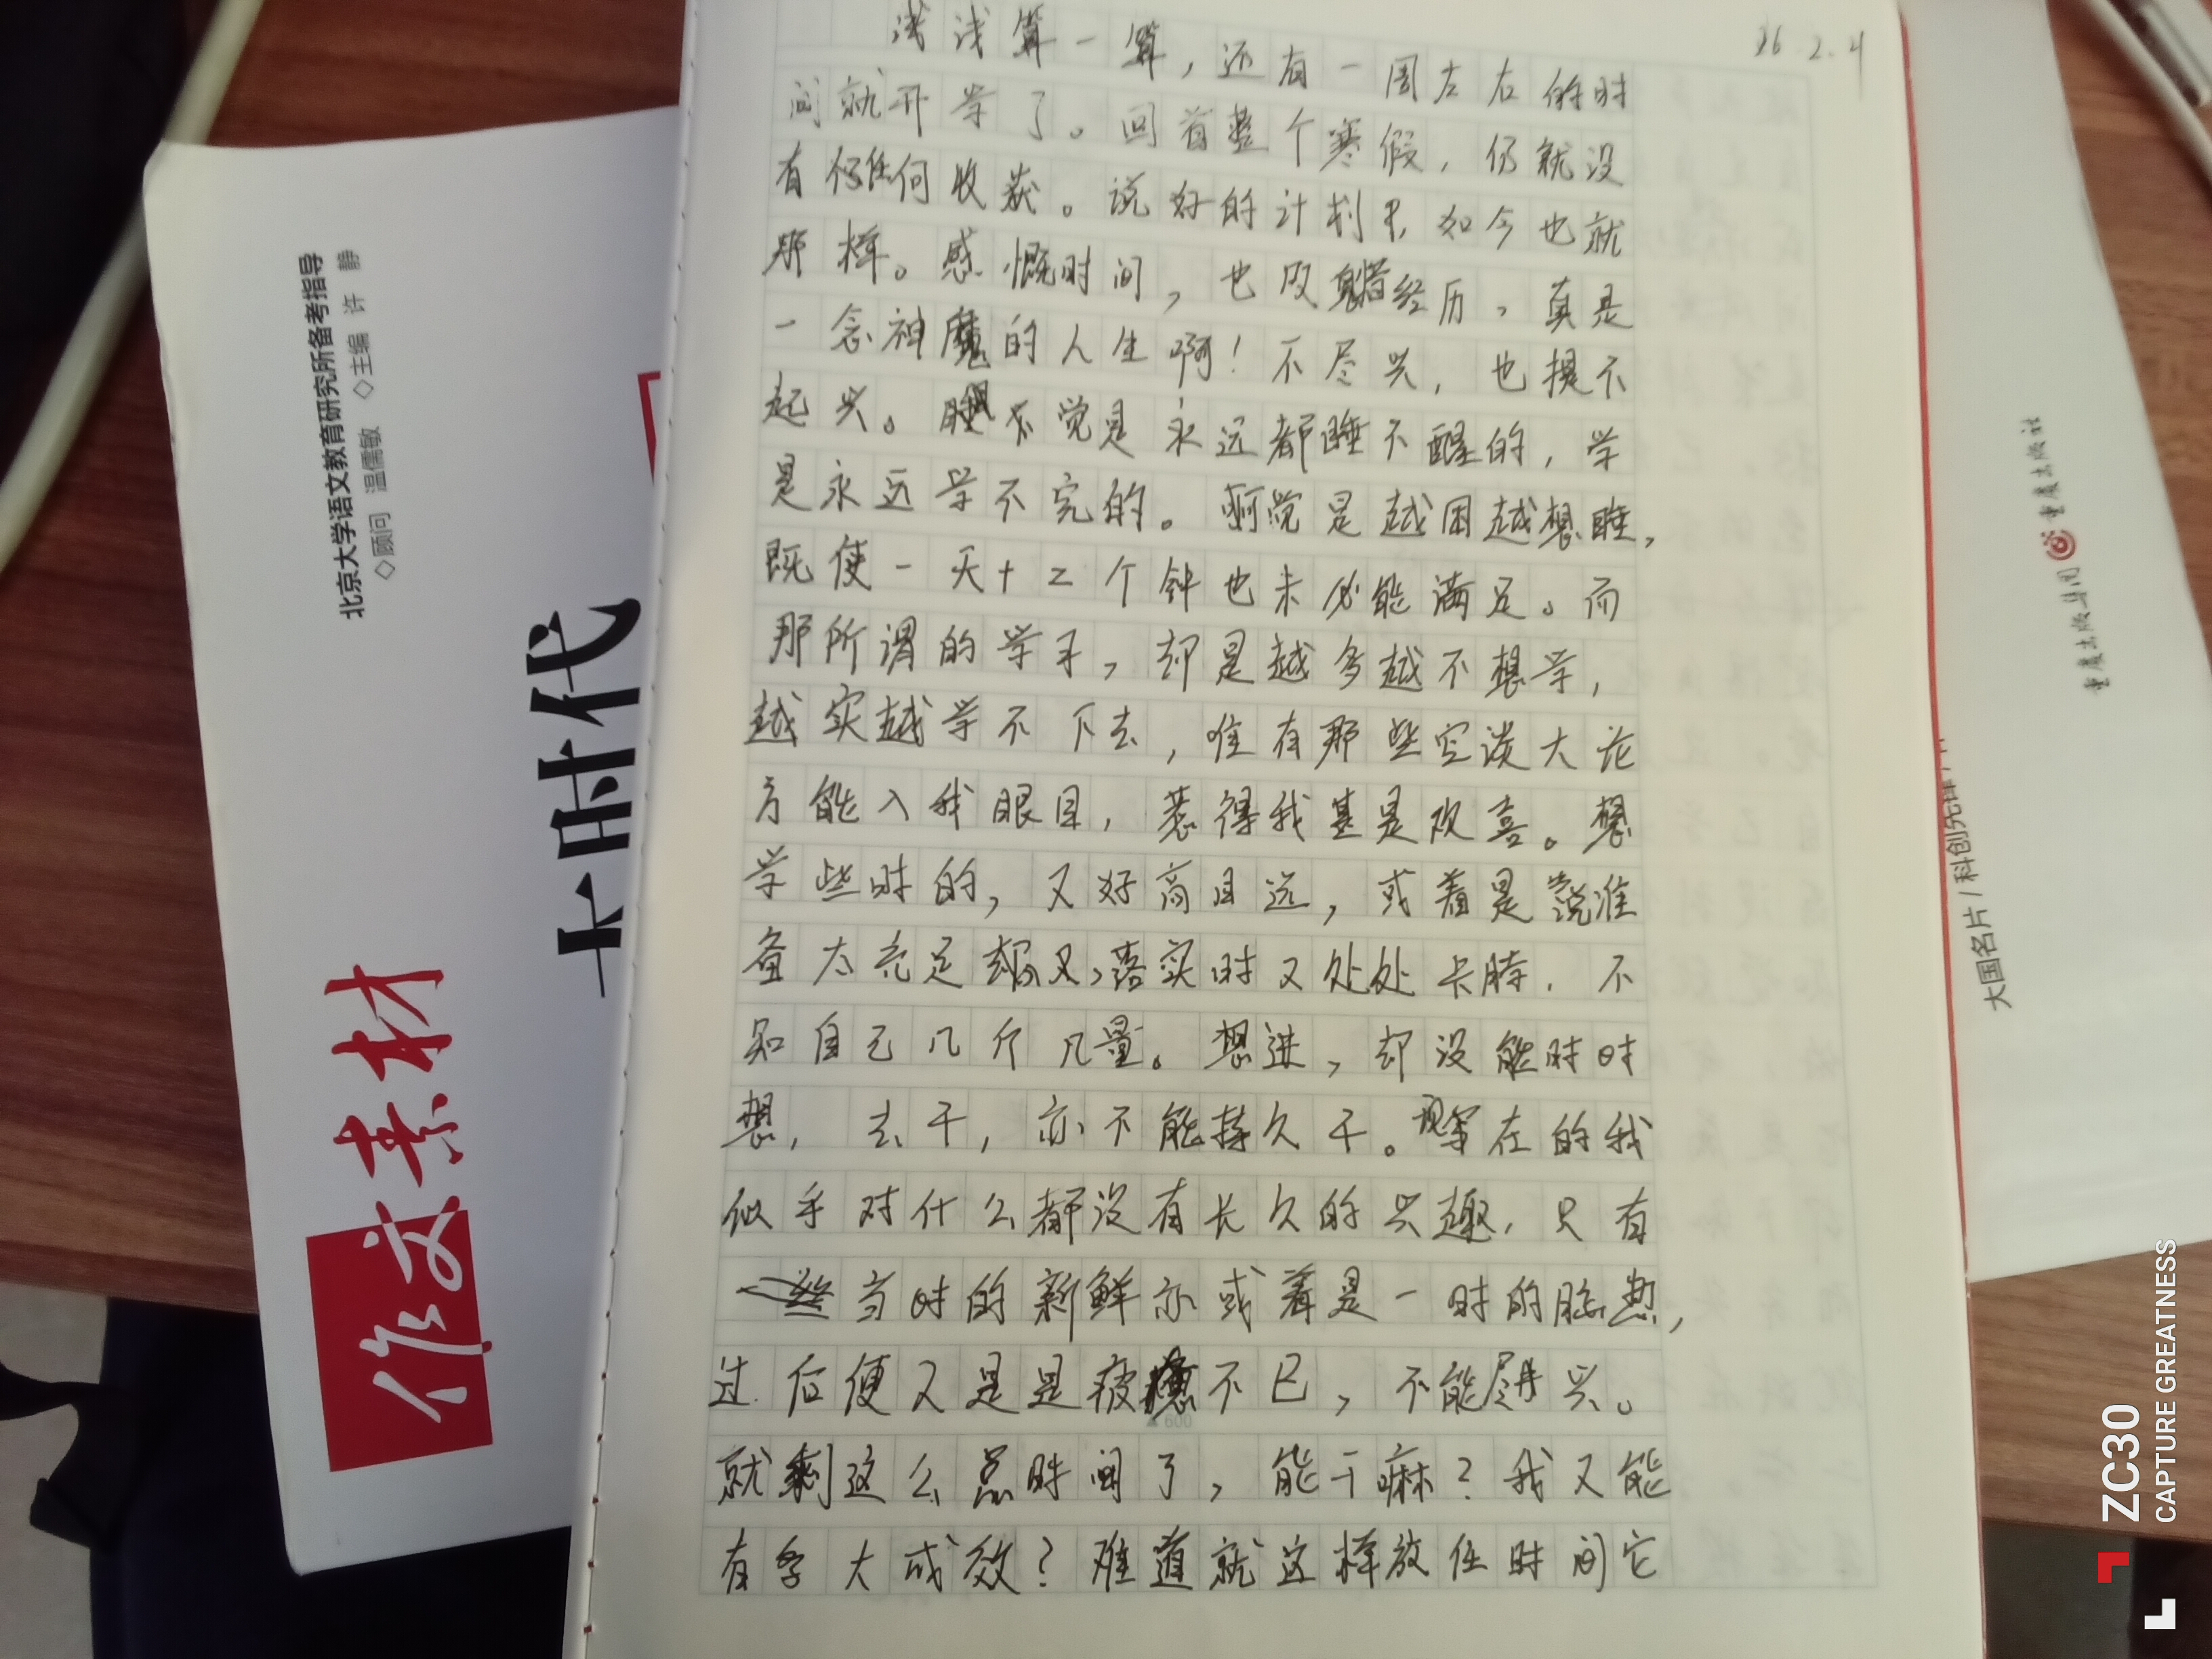 26.2.4
浅浅算一算，还有一周左右的时
间就开学了。回首整个寒假，仍就没
有任何收获。说好的计划呢，如今也就
那样。感慨时间，也反省着经历，真是
一念神魔的人生啊！不尽兴，也提不
起兴。觉是永远都睡不醒的，学
是永远学不完的。啊觉是越困越想睡，
既使一天十二个钟也未必能满足。而
那所谓的学习，却是越多越不想学，
越实越学不下去，唯有那些空谈大论
方能入我眼目，惹得我甚是欢喜。想
学些时的，又好高目远，或着是说准
备太充足，落实时又处处卡脖，不
知自己几斤几量。想进，却没能时时
想，去干，亦不能持久干。现在的我
似乎对什么都没有长久的兴趣，只有
当时的新鲜亦或着是一时的脑热，
过后便又是是疲惫不已，不能尽兴。
就剩这么点时间了，能干嘛？我又能
有多大成效？难道就这样放任时间它
600
作文素材
大时代
北京大学语文教育研究所备考指导
◇顾问 温儒敏 ◇主编 许静
重庆出版集团 重庆出版社
大国名片/科创先锋/
ZC30
CAPTURE GREATNESS